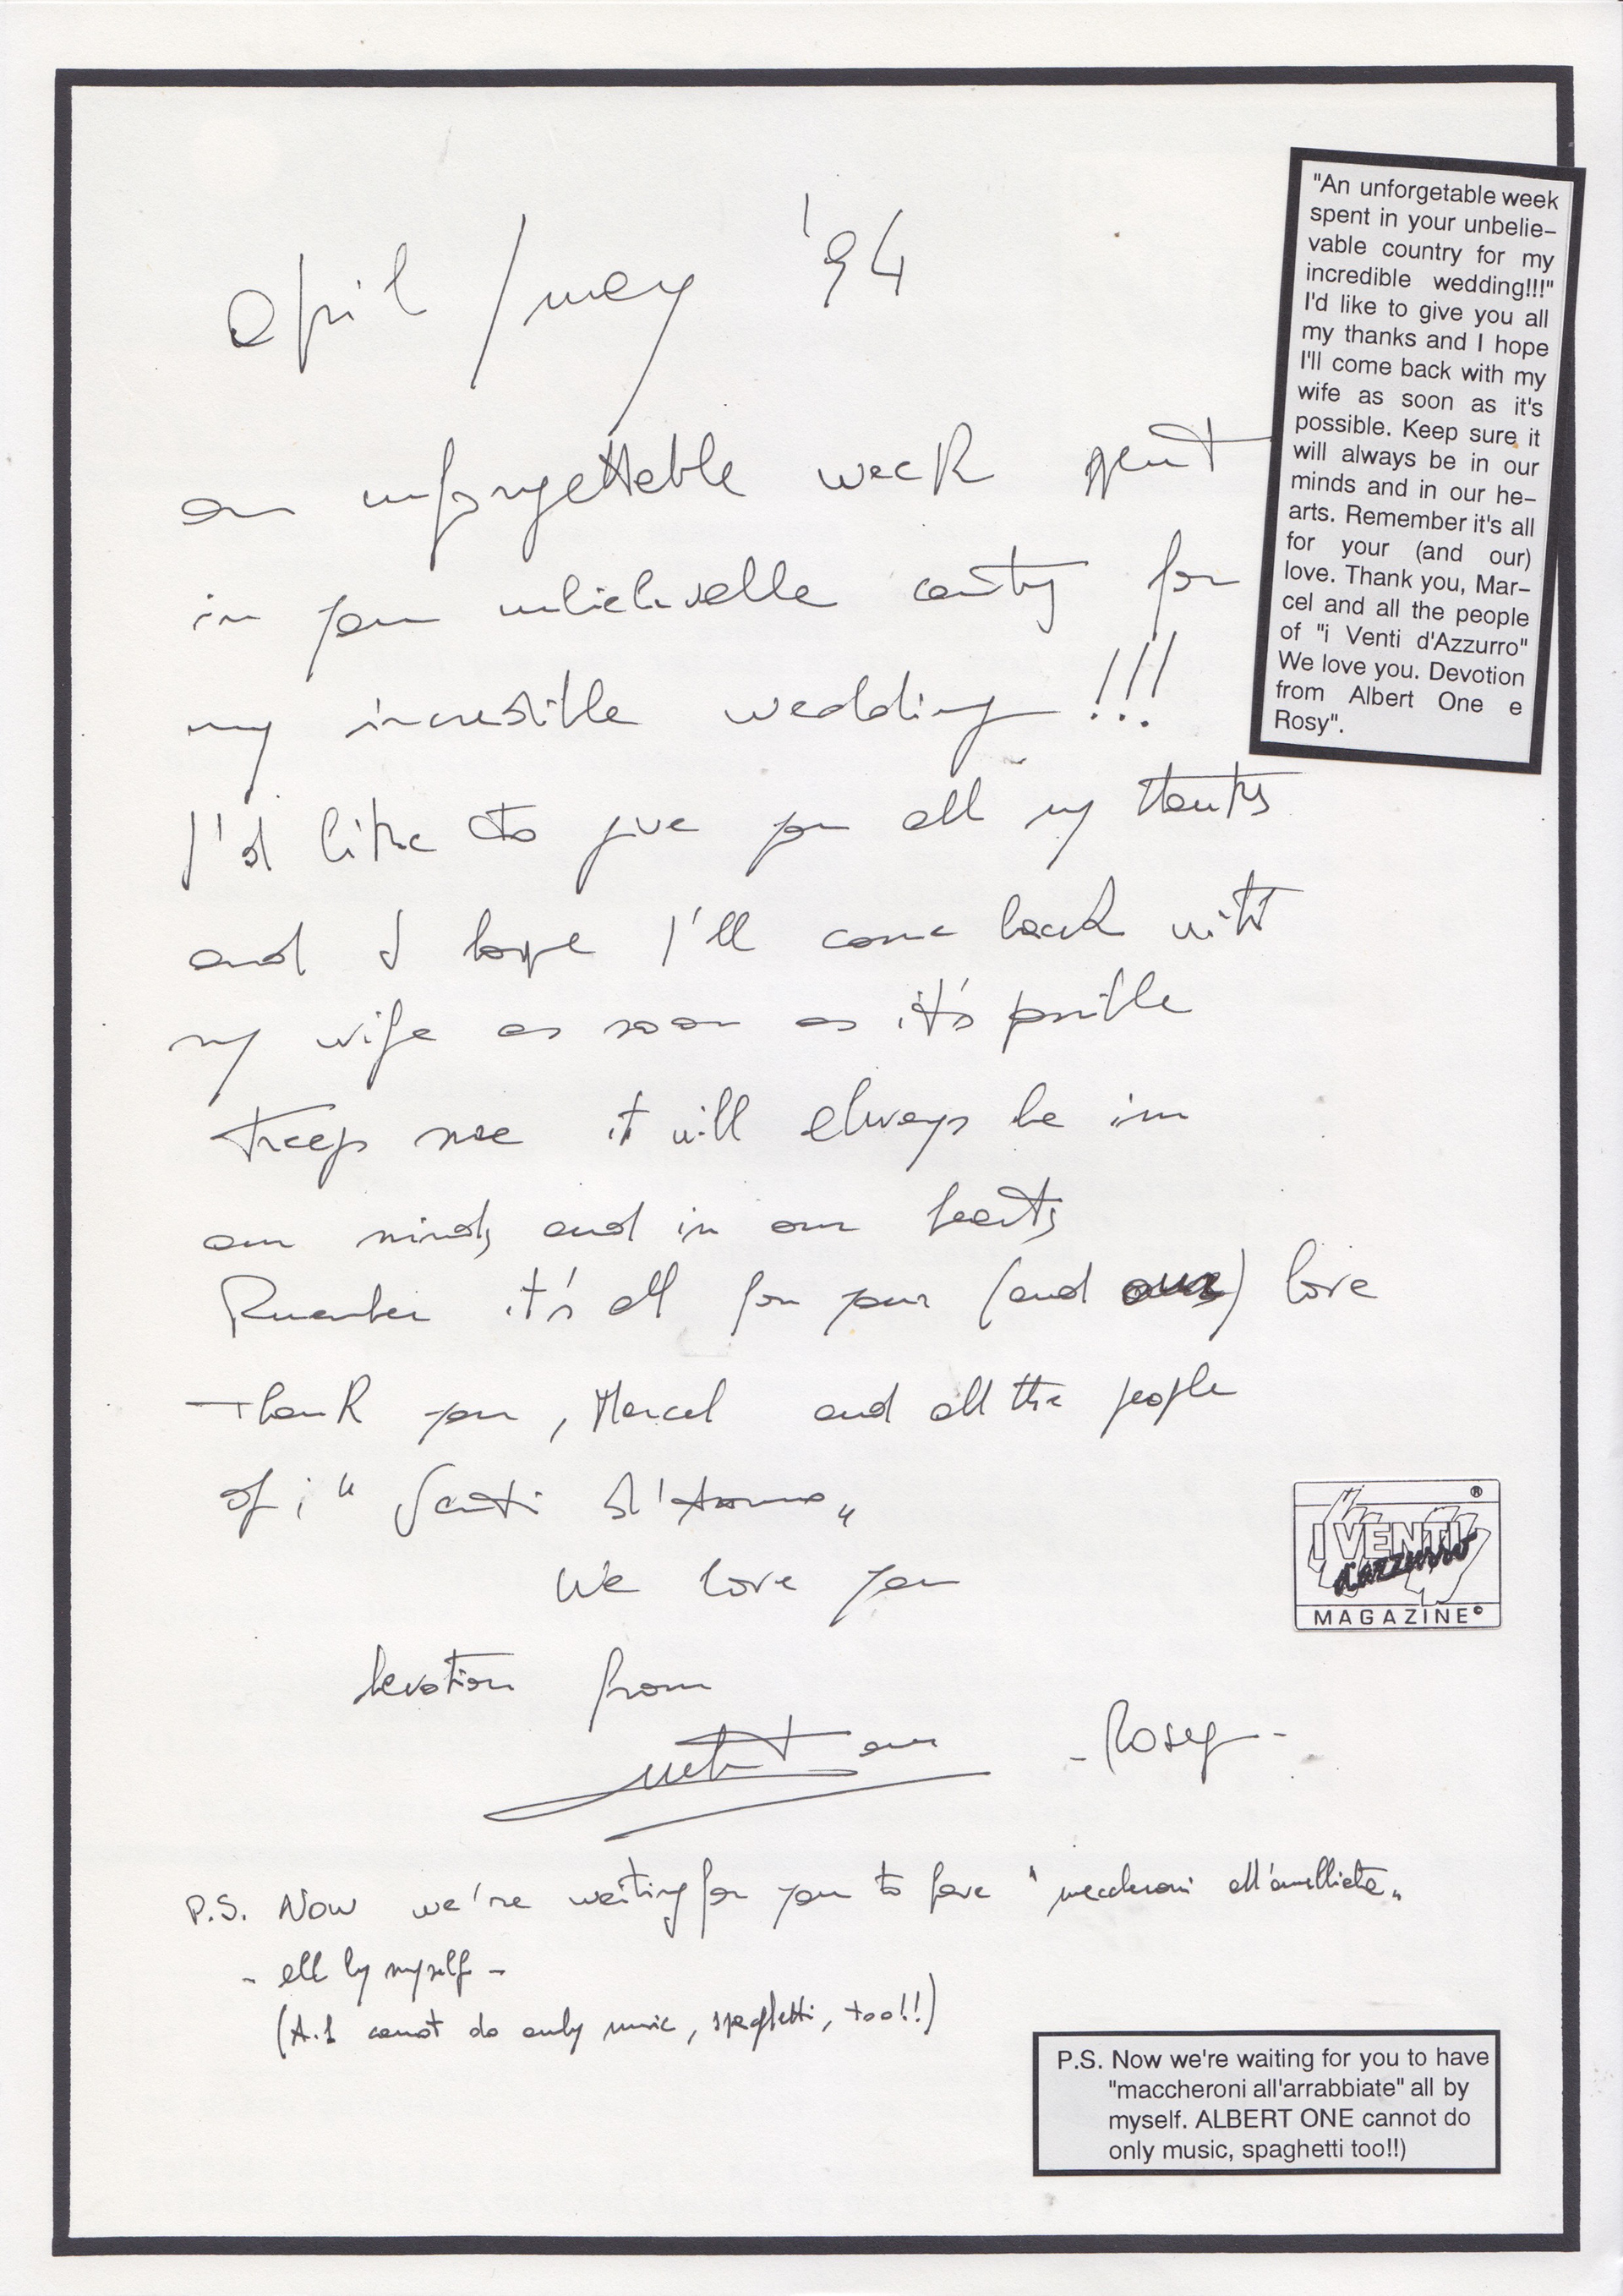 april / may '94
an unforgettable week spent
in your unbelievable country for
my incredible wedding !!!
I'd like to give you all my thanks
and I hope I'll come back with
my wife as soon as it's possible
Keep sure it will always be in
our minds and in our hearts
Remember it's all for your (and our) love
Thank you, Marcel and all the people
of i " Venti d'Azzurro "
We love you
Devotion from
Albert One - Rosy -
P.S. Now we're waiting for you to have "maccheroni all'arrabbiata"
- all by myself -
(A.1 cannot do only music, spaghetti, too!!)
"An unforgetable week
spent in your unbelie-
vable country for my
incredible wedding!!!"
I'd like to give you all
my thanks and I hope
I'll come back with my
wife as soon as it's
possible. Keep sure it
will always be in our
minds and in our he-
arts. Remember it's all
for your (and our)
love. Thank you, Mar-
cel and all the people
of "i Venti d'Azzurro"
We love you. Devotion
from Albert One e
Rosy".
I VENTI ®
d'azzurro
MAGAZINE©
P.S. Now we're waiting for you to have
"maccheroni all'arrabbiate" all by
myself. ALBERT ONE cannot do
only music, spaghetti too!!)